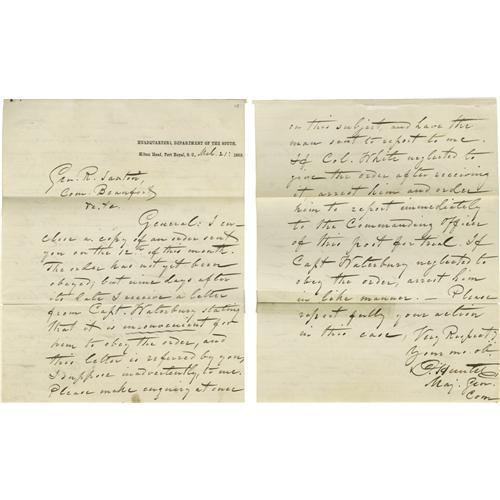 HEADQUARTERS, DEPARTMENT OF THE SOUTH,
Hilton Head, Port Royal, S. C., Mch. 21st 1863.
Gen. R. Saxton,
Com. Beaufort,
&c. &c.
General: I en-
close a copy of an order sent
you on the 12th of this month.
The order has not yet been
obeyed; but nine days after
its date I receive a letter
from Capt. Waterbury stating
that it is inconvenient for
him to obey the order, and
this letter is referred by you,
I suppose inadvertently, to me.
Please make enquiry at once
on this subject, and have the
man sent to report to me.
If Col. White neglected to
give the order after receiving
it arrest him and order
him to report immediately
to the Commanding Officer
of this post for trial. If
Capt Waterbury neglected to
obey the order, arrest him
in like manner. — Please
report fully your action
in this case, Very Respect'y
Your mo. ob
D. Hunter
Maj. Gen.
Com